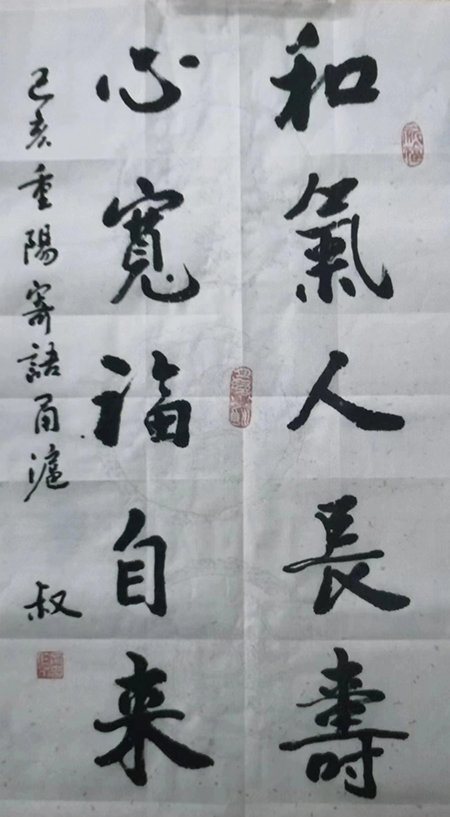 和氣人長壽
心寬福自来
己亥重陽寄語甬滬 叔